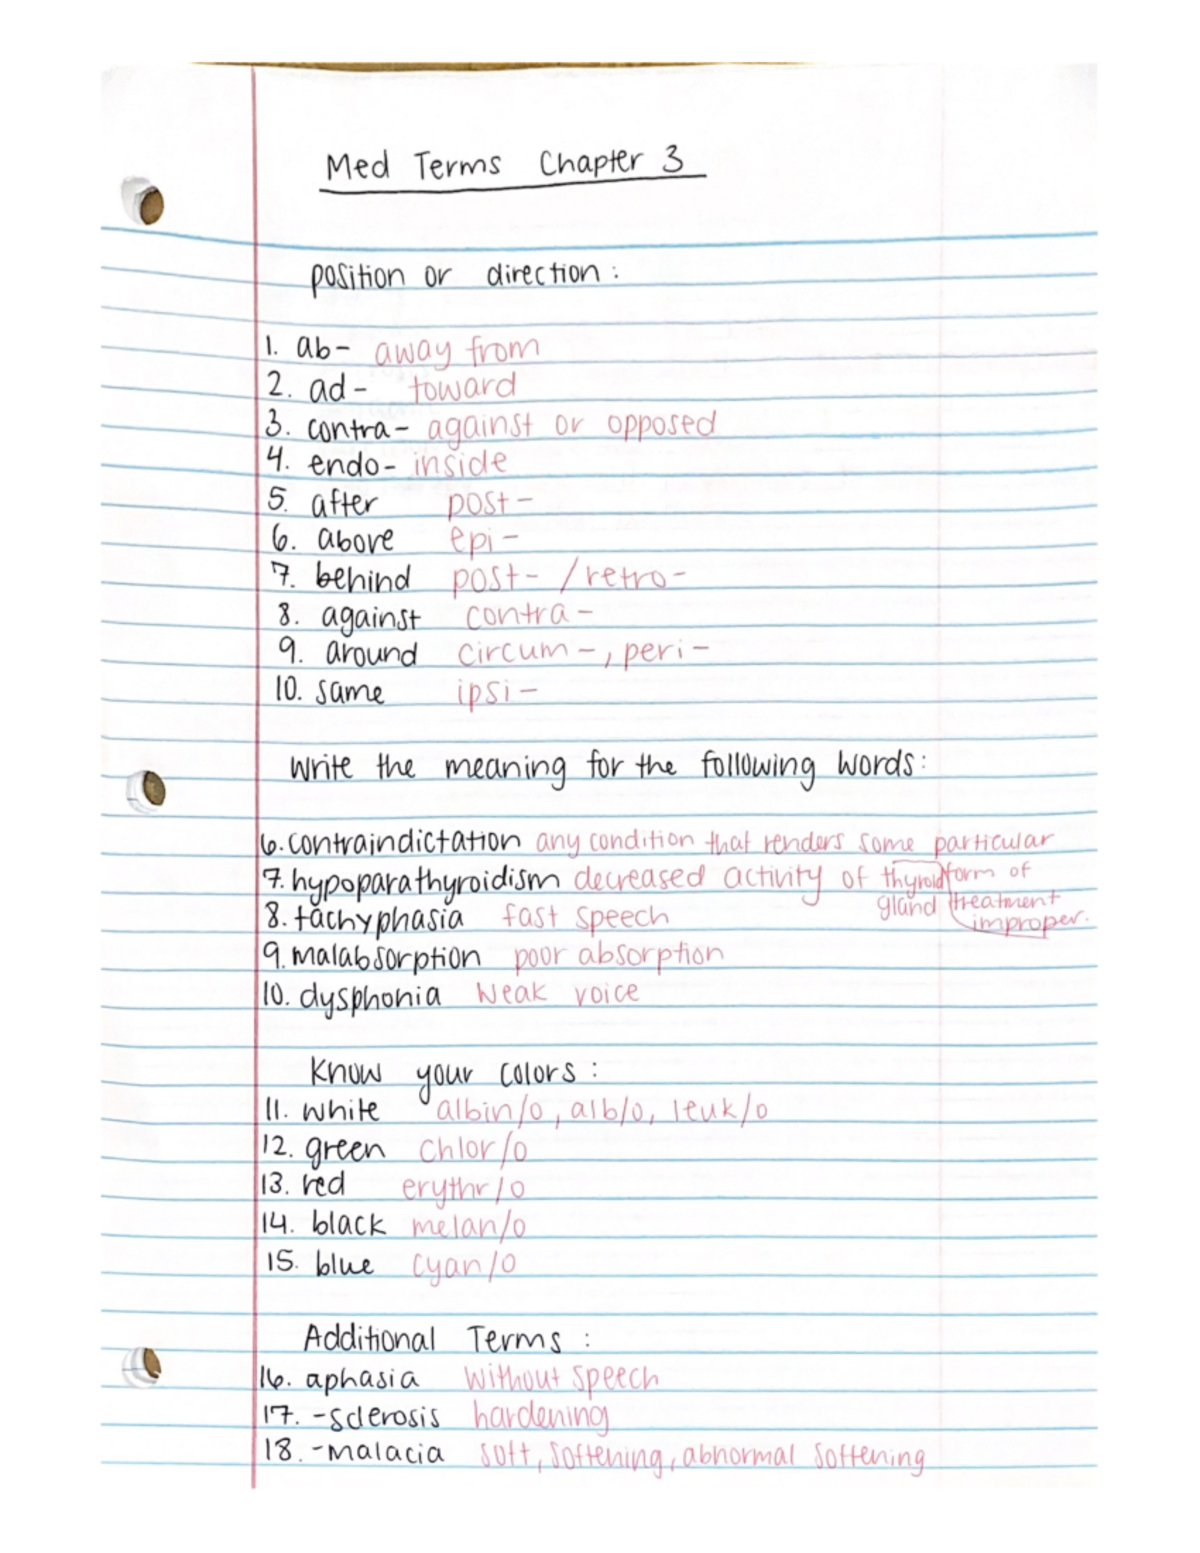 Med Terms Chapter 3
position or direction:
1. ab- away from
2. ad- toward
3. contra- against or opposed
4. endo- inside
5. after post-
6. above epi-
7. behind post- / retro-
8. against contra-
9. around circum-, peri-
10. same ipsi-
Write the meaning for the following words:
6. contraindictation any condition that renders some particular
7. hypoparathyroidism decreased activity of thyroid form of
gland treatment
8. tachyphasia fast speech improper.
9. malabsorption poor absorption
10. dysphonia weak voice
Know your colors:
11. white albin/o, alb/o, leuk/o
12. green chlor/o
13. red erythr/o
14. black melan/o
15. blue cyan/o
Additional Terms:
16. aphasia without speech
17. -sclerosis hardening
18. -malacia soft, softening, abnormal softening